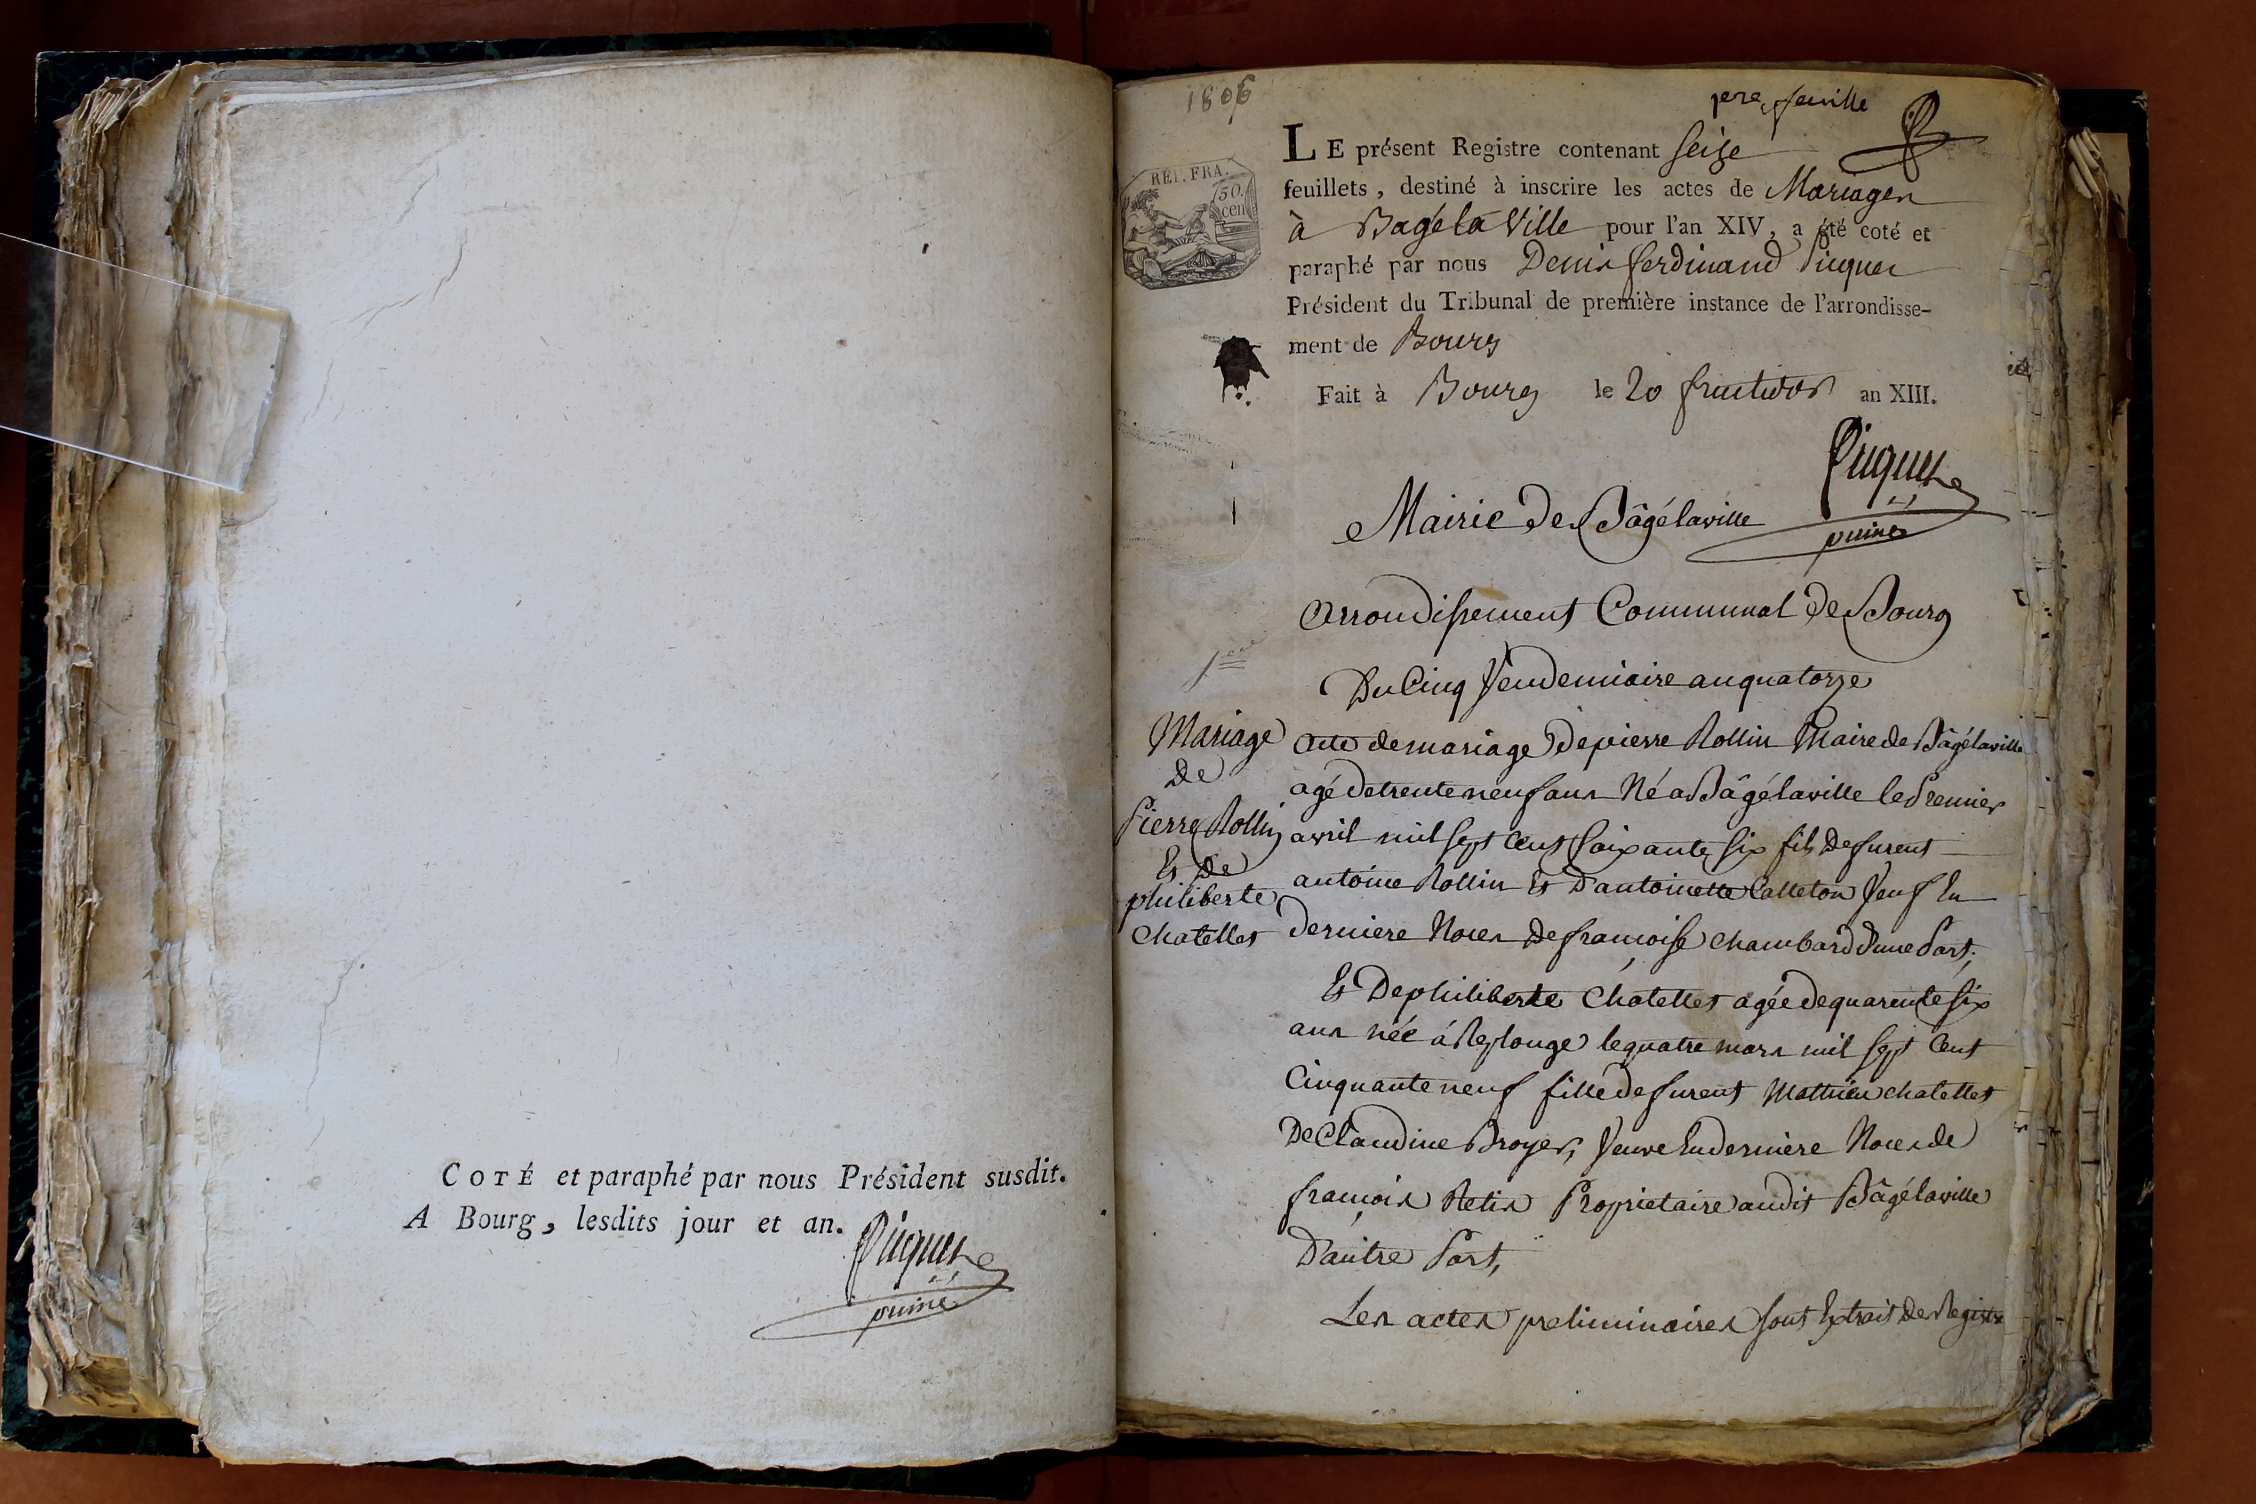 COTÉ et paraphé par nous Président susdit.
A Bourg, lesdits jour et an.
Picquet
puiné
1806
1ere feuille
LE présent Registre contenant seize
feuillets, destiné à inscrire les actes de Mariages
à Bagé la Ville pour l'an XIV, a été coté et
paraphé par nous Denis ferdinand Picquet
Président du Tribunal de première instance de l'arrondisse-
ment de Bourg
Fait à Bourg le 20 fructidor an XIII.
REP. FRA.
50.
cen
Picquet
puiné
Mairie De Bâgélaville
arrondissement Communal De Bourg
Du Cinq Vendemiaire an quatorze
Mariage
De
Pierre Rollin
Et De
philiberte
Chatellet
acte de mariage De pierre Rollin Maire de Bâgélaville
agé de trente neuf ans Né a Bâgélaville le Premier
avril mil sept Cent soixante six fils De furent
antoine Rollin Et D'antoinette Calleton Veuf En
derniere Noces De françoise Chambard D'une Part;
Et De philiberte Chatellet agée de quarente six
ans née á Replonge le quatre mars mil sept Cent
Cinquante neuf fille de furent Mathieu Chatellet
De Claudine Broyer, Veuve En derniere Noces de
françois Retis Proprietaire audit Bâgélaville
D'autre Part,
Les actes preliminaires sont Extrait De Registre